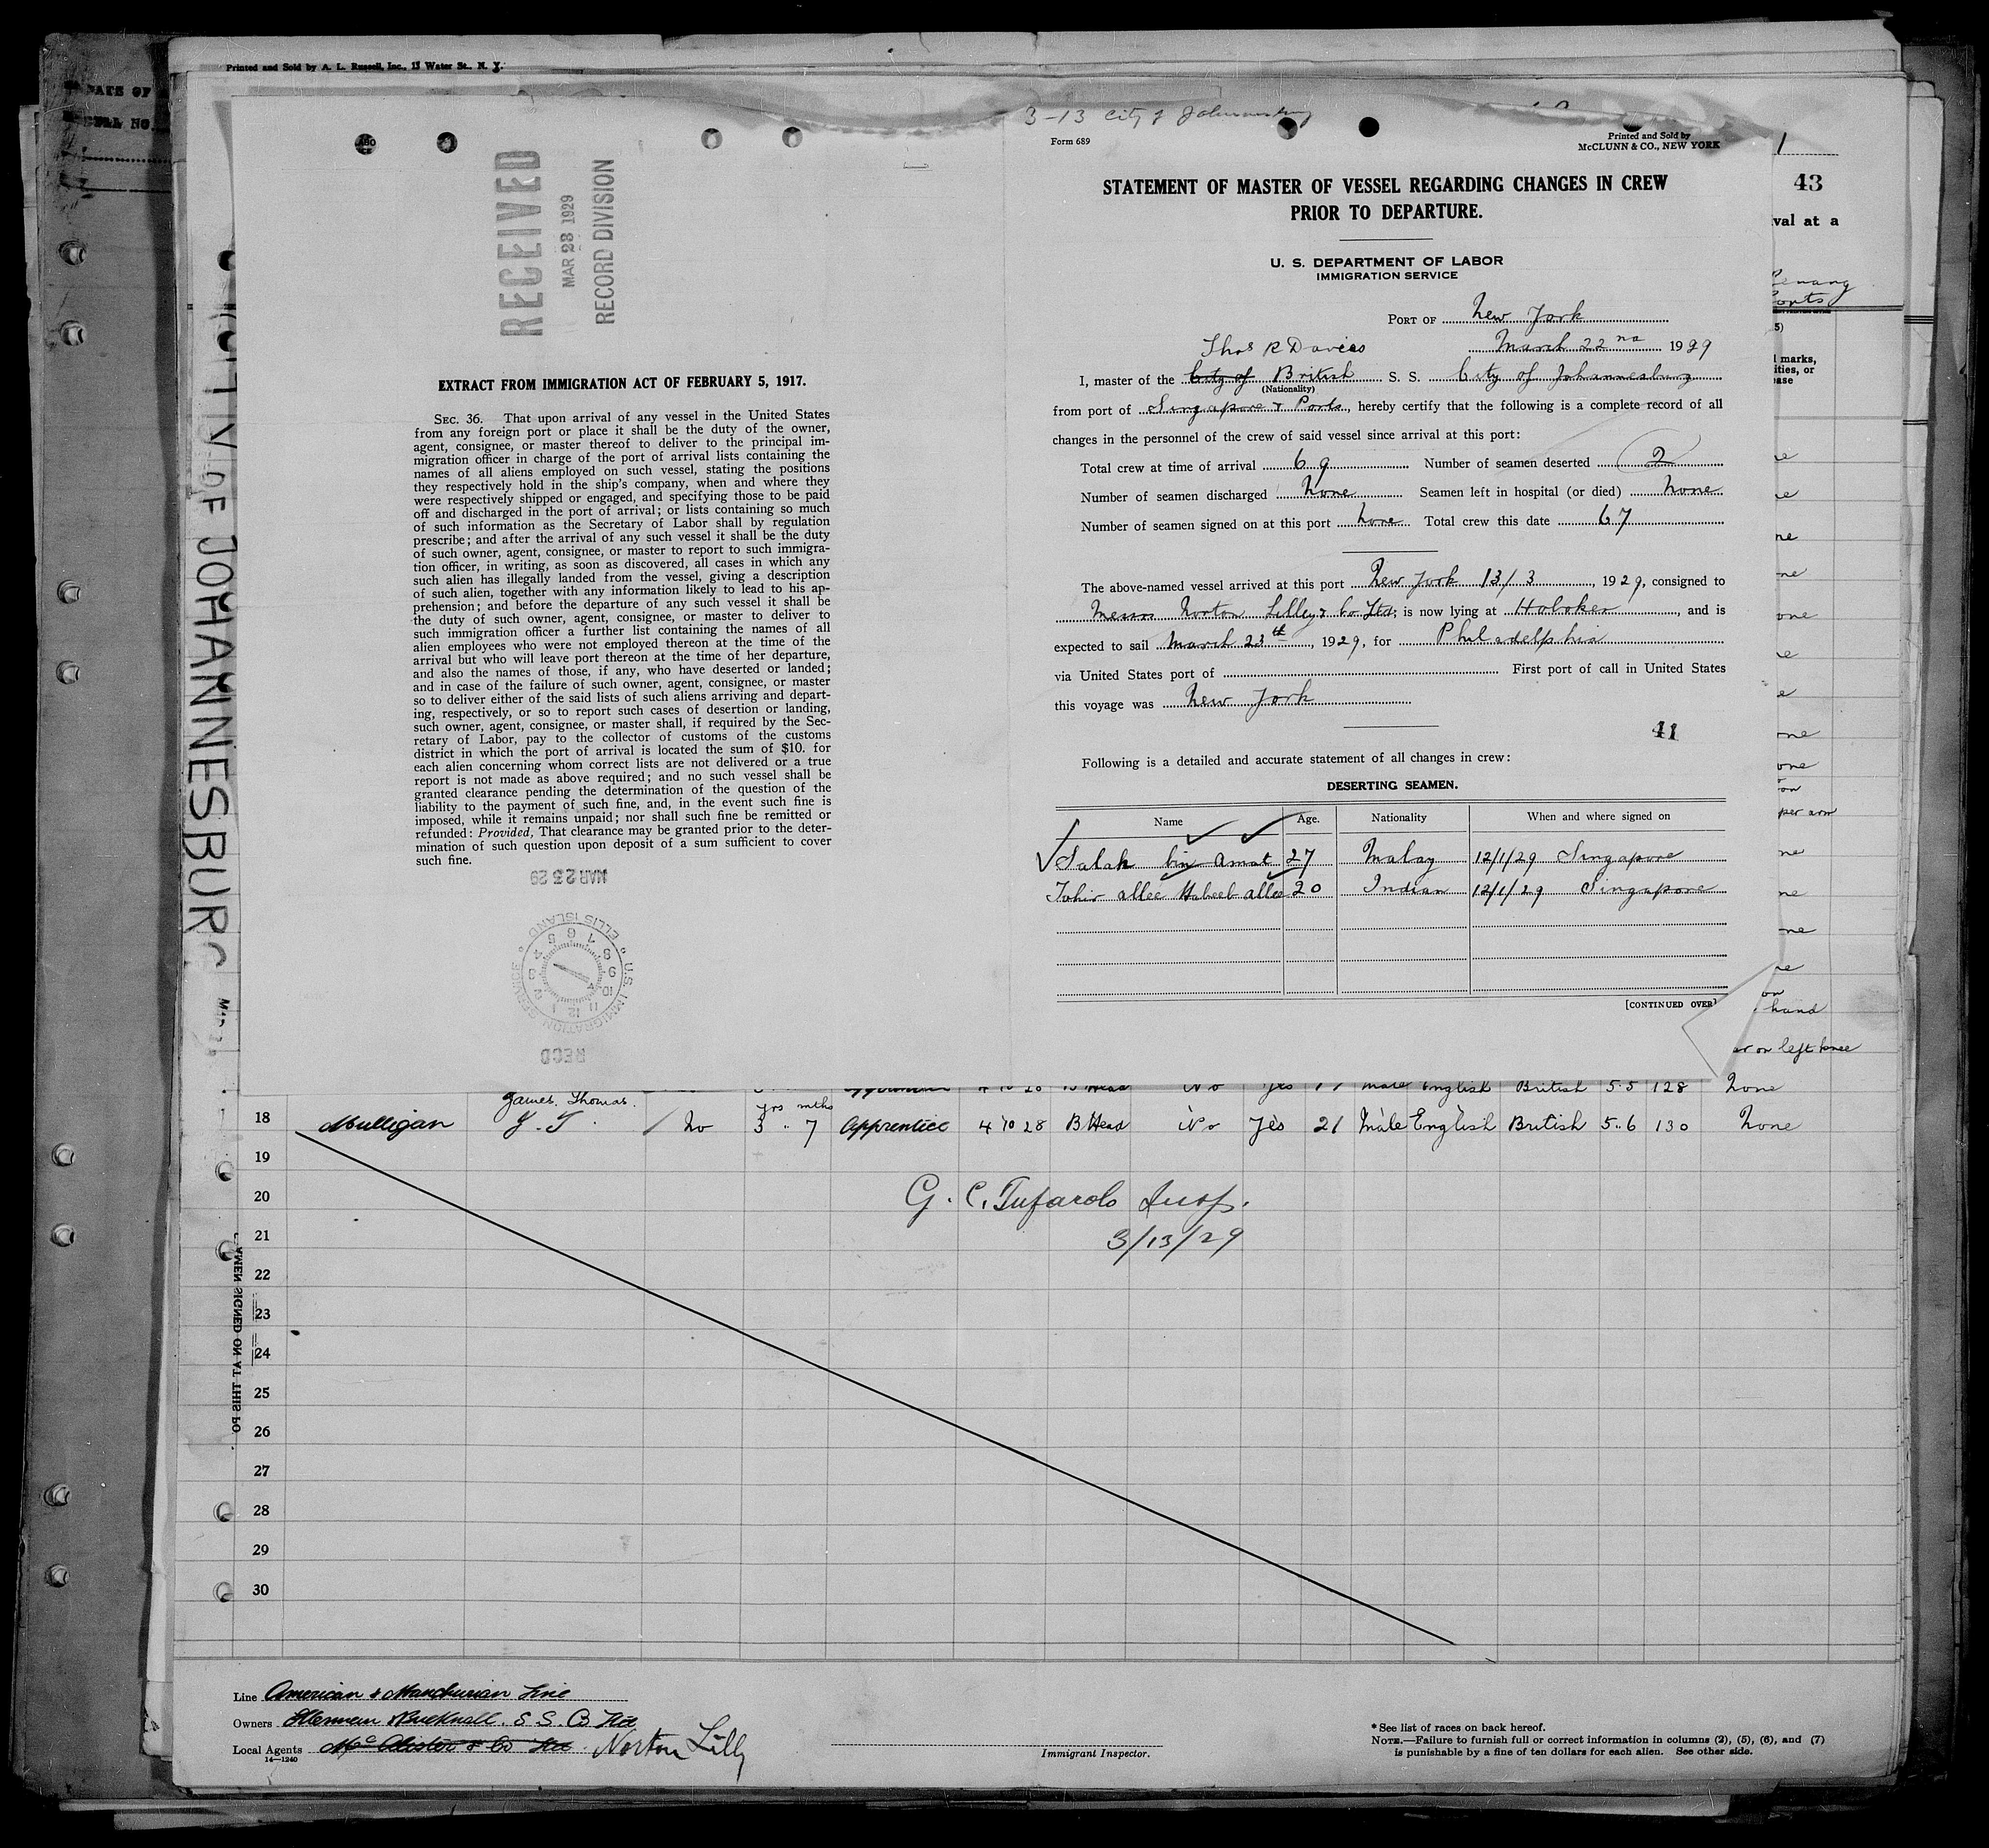 Printed and Sold by A. L. Russell, Inc., 13 Water St., N. Y.
CITY OF JOHANNESBURG
RECEIVED
MAR 23 1929
RECORD DIVISION
EXTRACT FROM IMMIGRATION ACT OF FEBRUARY 5, 1917.
SEC. 36. That upon arrival of any vessel in the United States
from any foreign port or place it shall be the duty of the owner,
agent, consignee, or master thereof to deliver to the principal im-
migration officer in charge of the port of arrival lists containing the
names of all aliens employed on such vessel, stating the positions
they respectively hold in the ship's company, when and where they
were respectively shipped or engaged, and specifying those to be paid
off and discharged in the port of arrival; or lists containing so much
of such information as the Secretary of Labor shall by regulation
prescribe; and after the arrival of any such vessel it shall be the duty
of such owner, agent, consignee, or master to report to such immigra-
tion officer, in writing, as soon as discovered, all cases in which any
such alien has illegally landed from the vessel, giving a description
of such alien, together with any information likely to lead to his ap-
prehension; and before the departure of any such vessel it shall be
the duty of such owner, agent, consignee, or master to deliver to
such immigration officer a further list containing the names of all
alien employees who were not employed thereon at the time of the
arrival but who will leave port thereon at the time of her departure,
and also the names of those, if any, who have deserted or landed;
and in case of the failure of such owner, agent, consignee, or master
so to deliver either of the said lists of such aliens arriving and depart-
ing, respectively, or so to report such cases of desertion or landing,
such owner, agent, consignee, or master shall, if required by the Sec-
retary of Labor, pay to the collector of customs of the customs
district in which the port of arrival is located the sum of $10. for
each alien concerning whom correct lists are not delivered or a true
report is not made as above required; and no such vessel shall be
granted clearance pending the determination of the question of the
liability to the payment of such fine, and, in the event such fine is
imposed, while it remains unpaid; nor shall such fine be remitted or
refunded: Provided, That clearance may be granted prior to the deter-
mination of such question upon deposit of a sum sufficient to cover
such fine.
MAR 25 29
U.S. IMMIGRATION SERVICE
ELLIS ISLAND
RECD
3-13 City of Johannesburg
Form 689
Printed and Sold by
McCLUNN & CO., NEW YORK
STATEMENT OF MASTER OF VESSEL REGARDING CHANGES IN CREW
PRIOR TO DEPARTURE.
U. S. DEPARTMENT OF LABOR
IMMIGRATION SERVICE
PORT OF New York
Thos R Davies March 22nd 1929
I, master of the City of British S. S. City of Johannesburg
(Nationality)
from port of Singapore & Ports, hereby certify that the following is a complete record of all
changes in the personnel of the crew of said vessel since arrival at this port:
Total crew at time of arrival 69 Number of seamen deserted 2
Number of seamen discharged None Seamen left in hospital (or died) None
Number of seamen signed on at this port None Total crew this date 67
The above-named vessel arrived at this port New York 13/3, 1929, consigned to
Messrs Norton Lilley & Co. Ltd; is now lying at Hoboken, and is
expected to sail March 23th, 1929, for Philadelphia
via United States port of First port of call in United States
this voyage was New York
41
Following is a detailed and accurate statement of all changes in crew:
DESERTING SEAMEN.
Name Age. Nationality When and where signed on
Salah bin Amat 27 Malay 12/1/29 Singapore
Tahir allee Habeeb allee 20 Indian 12/1/29 Singapore
[CONTINUED OVER]
43
val at a
Penang
Ports
marks,
hand
on left knee
male English British 5.5 128 None
James. Thomas.
yrs mths
18 Mulligan J. T. No 3 " 7 Apprentice 4 10 28 B Head No Yes 21 Male English British 5..6 130 None
19
20
21
22
23
24
25
26
27
28
29
30
G. C. Tufarolo Insp.
3/13/29
SIGNED ON AT THIS PO
Line American & Manchurian Line
Owners Ellerman & Bucknall. S. S. Co Ltd
Local Agents Mc Alister & Co Ltd. Norton Lilly
14—1240
Immigrant Inspector.
* See list of races on back hereof.
NOTE.—Failure to furnish full or correct information in columns (2), (5), (6), and (7)
is punishable by a fine of ten dollars for each alien. See other side.